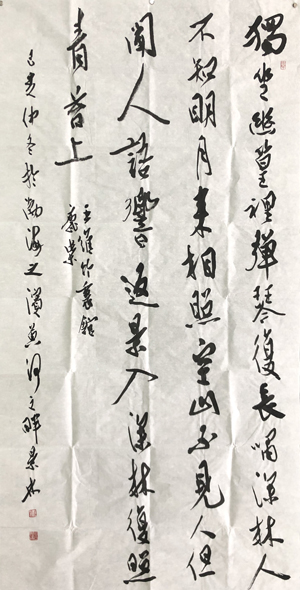 獨坐幽篁裡彈琴復長嘯深林人
不知明月來相照空山不見人但
聞人語響返景入深林復照
青苔上
王維竹裏館
鹿柴
己亥仲冬於渤海之濱黃河之畔景